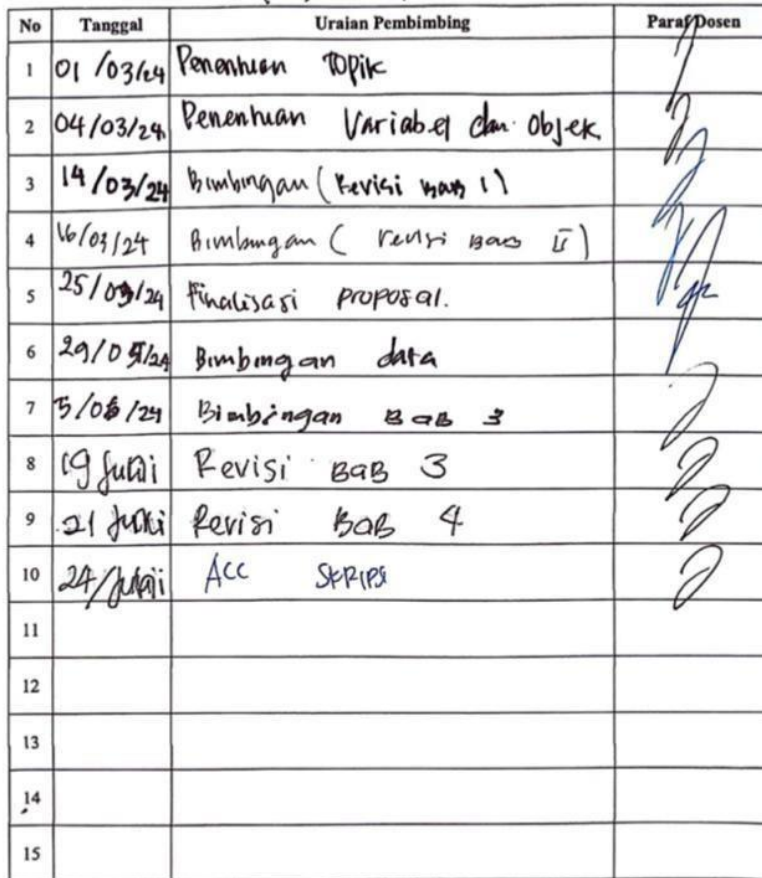 No Tanggal Uraian Pembimbing Paraf Dosen
1 01/03/24 Penentuan Topik
2 04/03/24 Penentuan Variabel dan Objek
3 14/03/24 Bimbingan (Revisi Bab 1)
4 16/03/24 Bimbingan (revisi Bab II)
5 25/03/24 Finalisasi proposal.
6 29/05/24 Bimbingan data
7 5/06/24 Bimbingan BaB 3
8 19 Revisi BaB 3
9 21 Revisi BaB 4
10 24/ ACC SKRIPSI
11
12
13
14
15